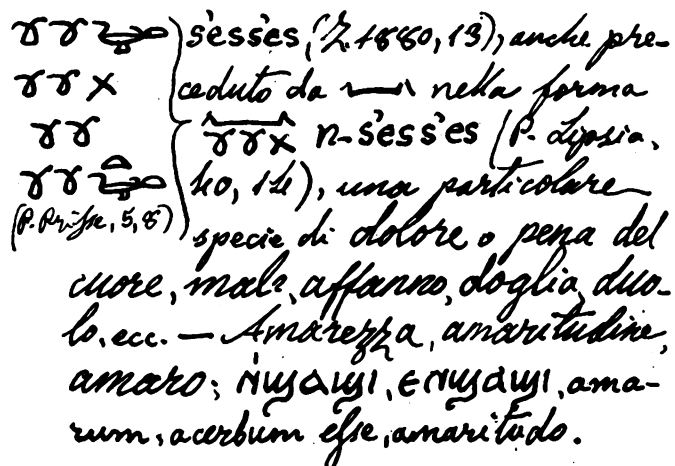 s'ess'es, (Z. 1880, 13), anche pre-
ceduto da nella forma
n-s'ess'es (P. Lipsia,
40, 14), una particolare
(P. Prisse, 5, 8)
specie di dolore o pena del
cuore, male, affanno, doglia, duo-
lo, ecc. — Amarezza, amaritudine,
amaro; ⲛ̇ϣⲁϣⲓ, ⲉⲛϣⲁϣⲓ, ama-
rum, acerbum esse, amaritudo.